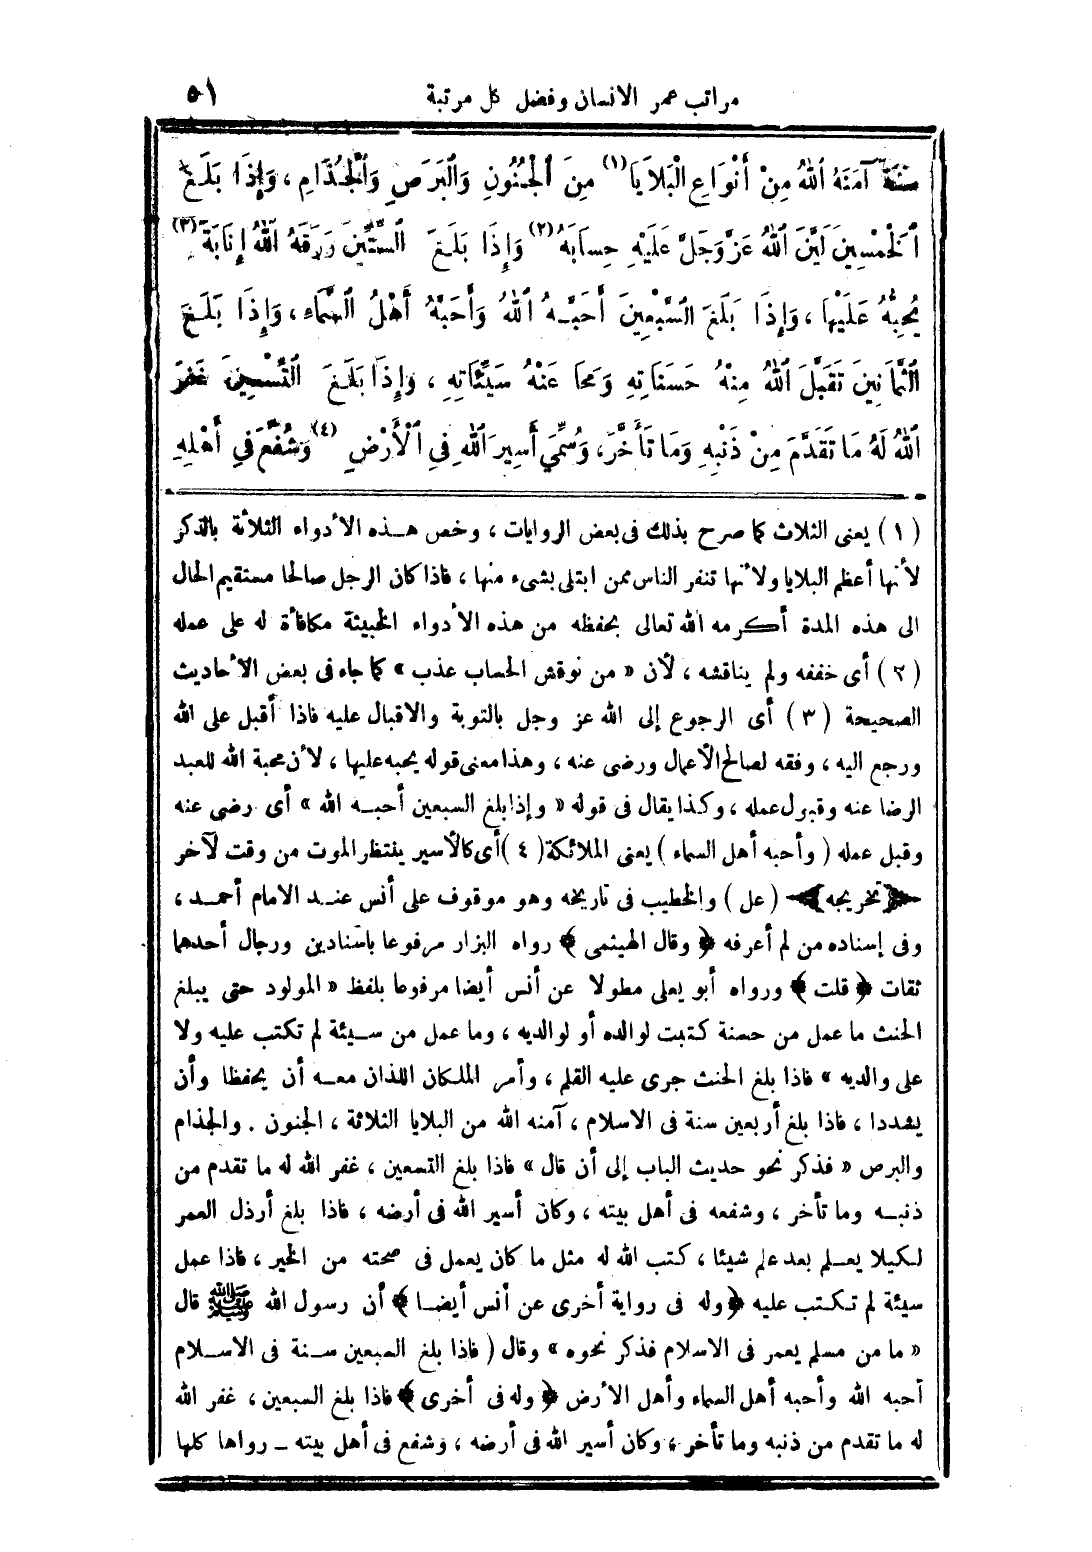 مراتب عمر الانسان وفضل كل مرتبة ٥١
سَنَةً آمَنَهُ اللهُ مِنْ أَنْوَاعِ الْبَلَايَا (١) مِنَ الْجُنُونِ وَالْبَرَصِ وَالْجُذَامِ ، وَإِذَا بَلَغَ
الْخَمْسِينَ لَيَّنَ اللهُ عَزَّ وَجَلَّ عَلَيْهِ حِسَابَهُ (٢) وَإِذَا بَلَغَ السِّتِّينَ رَزَقَهُ اللهُ إِنَابَةً (٣)
يُحِبُّهُ عَلَيْهَا ، وَإِذَا بَلَغَ السَّبْعِينَ أَحَبَّهُ اللهُ وَأَحَبَّهُ أَهْلُ السَّمَاءِ ، وَإِذَا بَلَغَ
الثَّمَانِينَ تَقَبَّلَ اللهُ مِنْهُ حَسَنَاتِهِ وَمَحَا عَنْهُ سَيِّئَاتِهِ ، وَإِذَا بَلَغَ التِّسْعِينَ غَفَرَ
اللهُ لَهُ مَا تَقَدَّمَ مِنْ ذَنْبِهِ وَمَا تَأَخَّرَ ، وَسُمِّيَ أَسِيرَ اللهِ فِي الْأَرْضِ (٤) وَشُفِّعَ فِي أَهْلِهِ
( ١ ) يعنى الثلاث كما صرح بذلك فى بعض الروايات ، وخص هذه الأدواء الثلاثة بالذكر
لأنها أعظم البلايا ولأنها تنفر الناس ممن ابتلى بشىء منها ، فاذا كان الرجل صالحا مستقيم الحال
الى هذه المدة أكرمه الله تعالى بحفظه من هذه الأدواء الخبيثة مكافأة له على عمله
( ٢ ) أى خففه ولم يناقشه ، لأن « من نوقش الحساب عذب » كما جاء فى بعض الأحاديث
الصحيحة ( ٣ ) أى الرجوع إلى الله عز وجل بالتوبة والاقبال عليه فاذا أقبل على الله
ورجع اليه ، وفقه لصالح الأعمال ورضى عنه ، وهذا معنى قوله يحبه عليها ، لأن محبة الله للعبد
الرضا عنه وقبول عمله ، وكذا يقال فى قوله « وإذا بلغ السبعين أحبه الله » أى رضى عنه
وقبل عمله ( وأحبه أهل السماء ) يعنى الملائكة ( ٤ ) أى كالأسير ينتظر الموت من وقت لآخر
﴿ تخريجه ﴾ ( عل ) والخطيب فى تاريخه وهو موقوف على أنس عند الامام أحمد ،
وفى إسناده من لم أعرفه ﴿ وقال الهيثمى ﴾ رواه البزار مرفوعا باسنادين ورجال أحدهما
ثقات ﴿ قلت ﴾ ورواه أبو يعلى مطولا عن أنس أيضا مرفوعا بلفظ « المولود حتى يبلغ
الحنث ما عمل من حسنة كتبت لوالده أو لوالديه ، وما عمل من سيئة لم تكتب عليه ولا
على والديه » فاذا بلغ الحنث جرى عليه القلم ، وأمر الملكان اللذان معه أن يحفظا وأن
يشددا ، فاذا بلغ أربعين سنة فى الاسلام ، آمنه الله من البلايا الثلاثة ، الجنون . والجذام
والبرص « فذكر نحو حديث الباب إلى أن قال » فاذا بلغ التسعين ، غفر الله له ما تقدم من
ذنبه وما تأخر ، وشفعه فى أهل بيته ، وكان أسير الله فى أرضه ، فاذا بلغ أرذل العمر
لكيلا يعلم بعد علم شيئا ، كتب الله له مثل ما كان يعمل فى صحته من الخير ، فاذا عمل
سيئة لم تكتب عليه ﴿ وله فى رواية أخرى عن أنس أيضا ﴾ أن رسول الله ﷺ قال
« ما من مسلم يعمر فى الاسلام فذكر نحوه » وقال ( فاذا بلغ السبعين سنة فى الاسلام
أحبه الله وأحبه أهل السماء وأهل الأرض ﴿ وله فى أخرى ﴾ فاذا بلغ السبعين ، غفر الله
له ما تقدم من ذنبه وما تأخر ، وكان أسير الله فى أرضه ، وشفع فى أهل بيته ــ رواها كلها